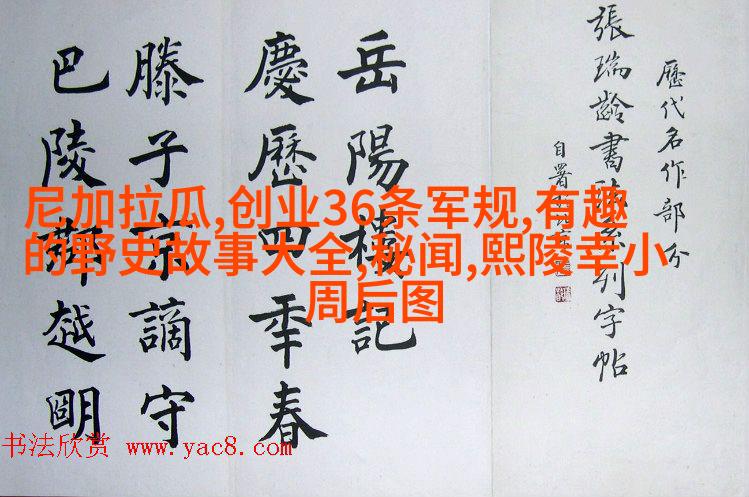 歷代名作部分
張瑞齡書法系列字帖
自署
岳陽樓記
慶歷四年春
滕子京謫守
巴陵郡越明
尼加拉瓜,创业36条军规,有趣
的野史故事大全,秘闻,熙陵幸小
周后图
书法欣赏 www.yac8.com